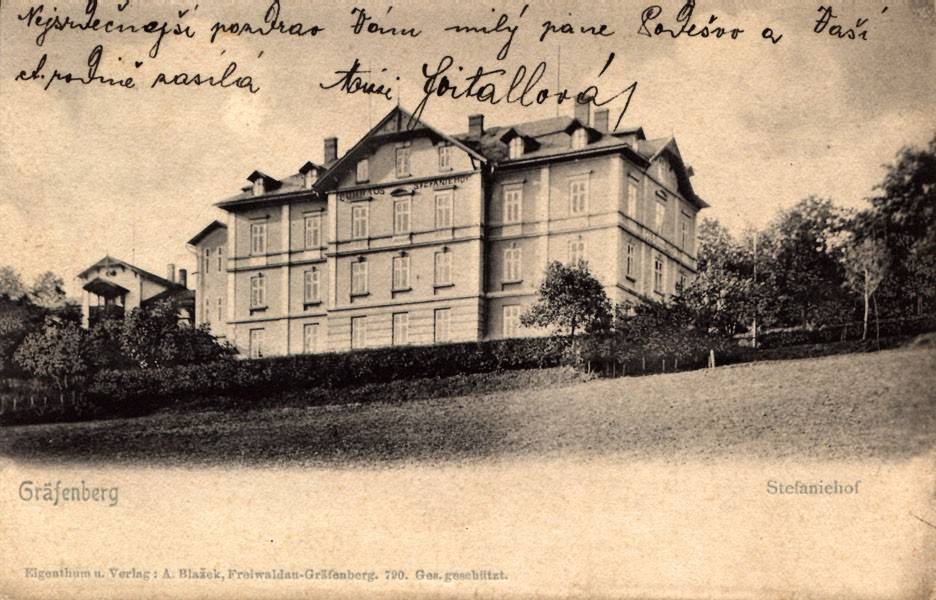 Nejsrdečnejší pozdrav Vám milý pane Podešvo a Vaší
ct. rodině zasílá
CURHAUS STEFANIEHOF
Gräfenberg
Stefaniehof
Eigenthum u. Verlag: A. Blažek, Freiwaldau-Gräfenberg. 790. Ges. geschützt.